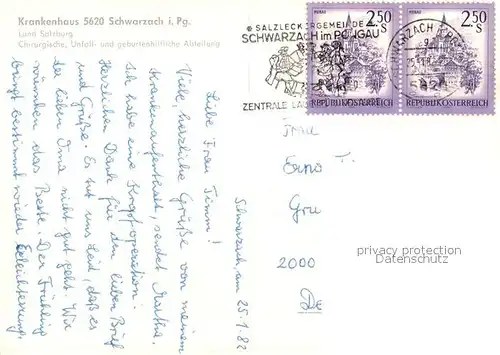 Krankenhaus 5620 Schwarzach i. Pg.
Land Salzburg
Chirurgische, Unfall- und geburtshilfliche Abteilung
SALZLECKERGEMEINDE
SCHWARZACH im PONGAU
ZENTRALE
MURAU
2.50 S
REPUBLIK ÖSTERREICH
MURAU
2.50 S
REPUBLIK ÖSTERREICH
Schwarzach, am 25.1.82
Liebe Frau Timm!
Viele herzliche Grüße von meinem
Krankenaufenthalt, sendet Martina.
Ich habe eine Kropfoperation.
Herzlichen Dank für den lieben Brief
und Grüße. Es tut uns Leid, daß es
der lieben Oma nicht gut geht. Wir
wünschen das Beste. Der Frühling
bringt bestimmt wieder Erleichterung.
Frau
Erno T.
Gru
2000
De
privacy protection
Datenschutz